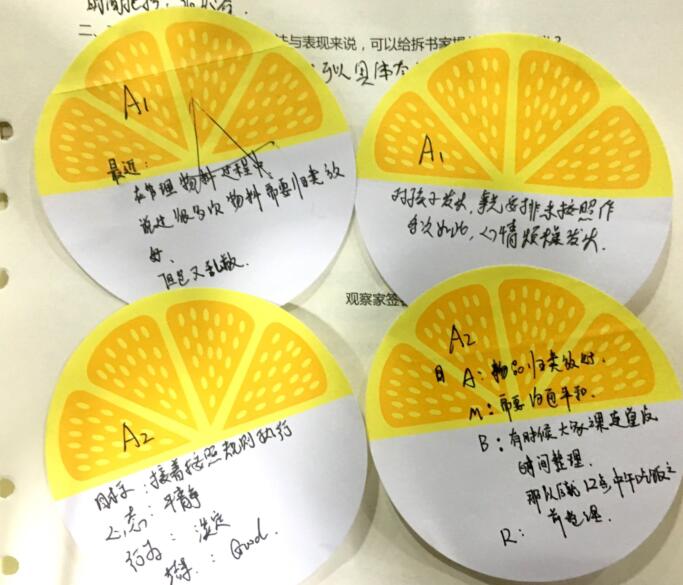 二、
法与表现来说，可以给拆书家提
可以具体
A1
最近：
在管理物料过程中
说过很多次物料需要归类放
好、
但是又乱散.
A1
对孩子发火，事先安排未按照作
每次如此，心情烦燥发火.
观察家签
A2
目标：接着按照规则执行
心态：平静
行为：淡定
结果：Good
A2
目 A：物品归类放好.
M：需要 平和.
B：有时候大家课 没
时间整理.
那以后就12点中午吃饭之
R： 前整理.